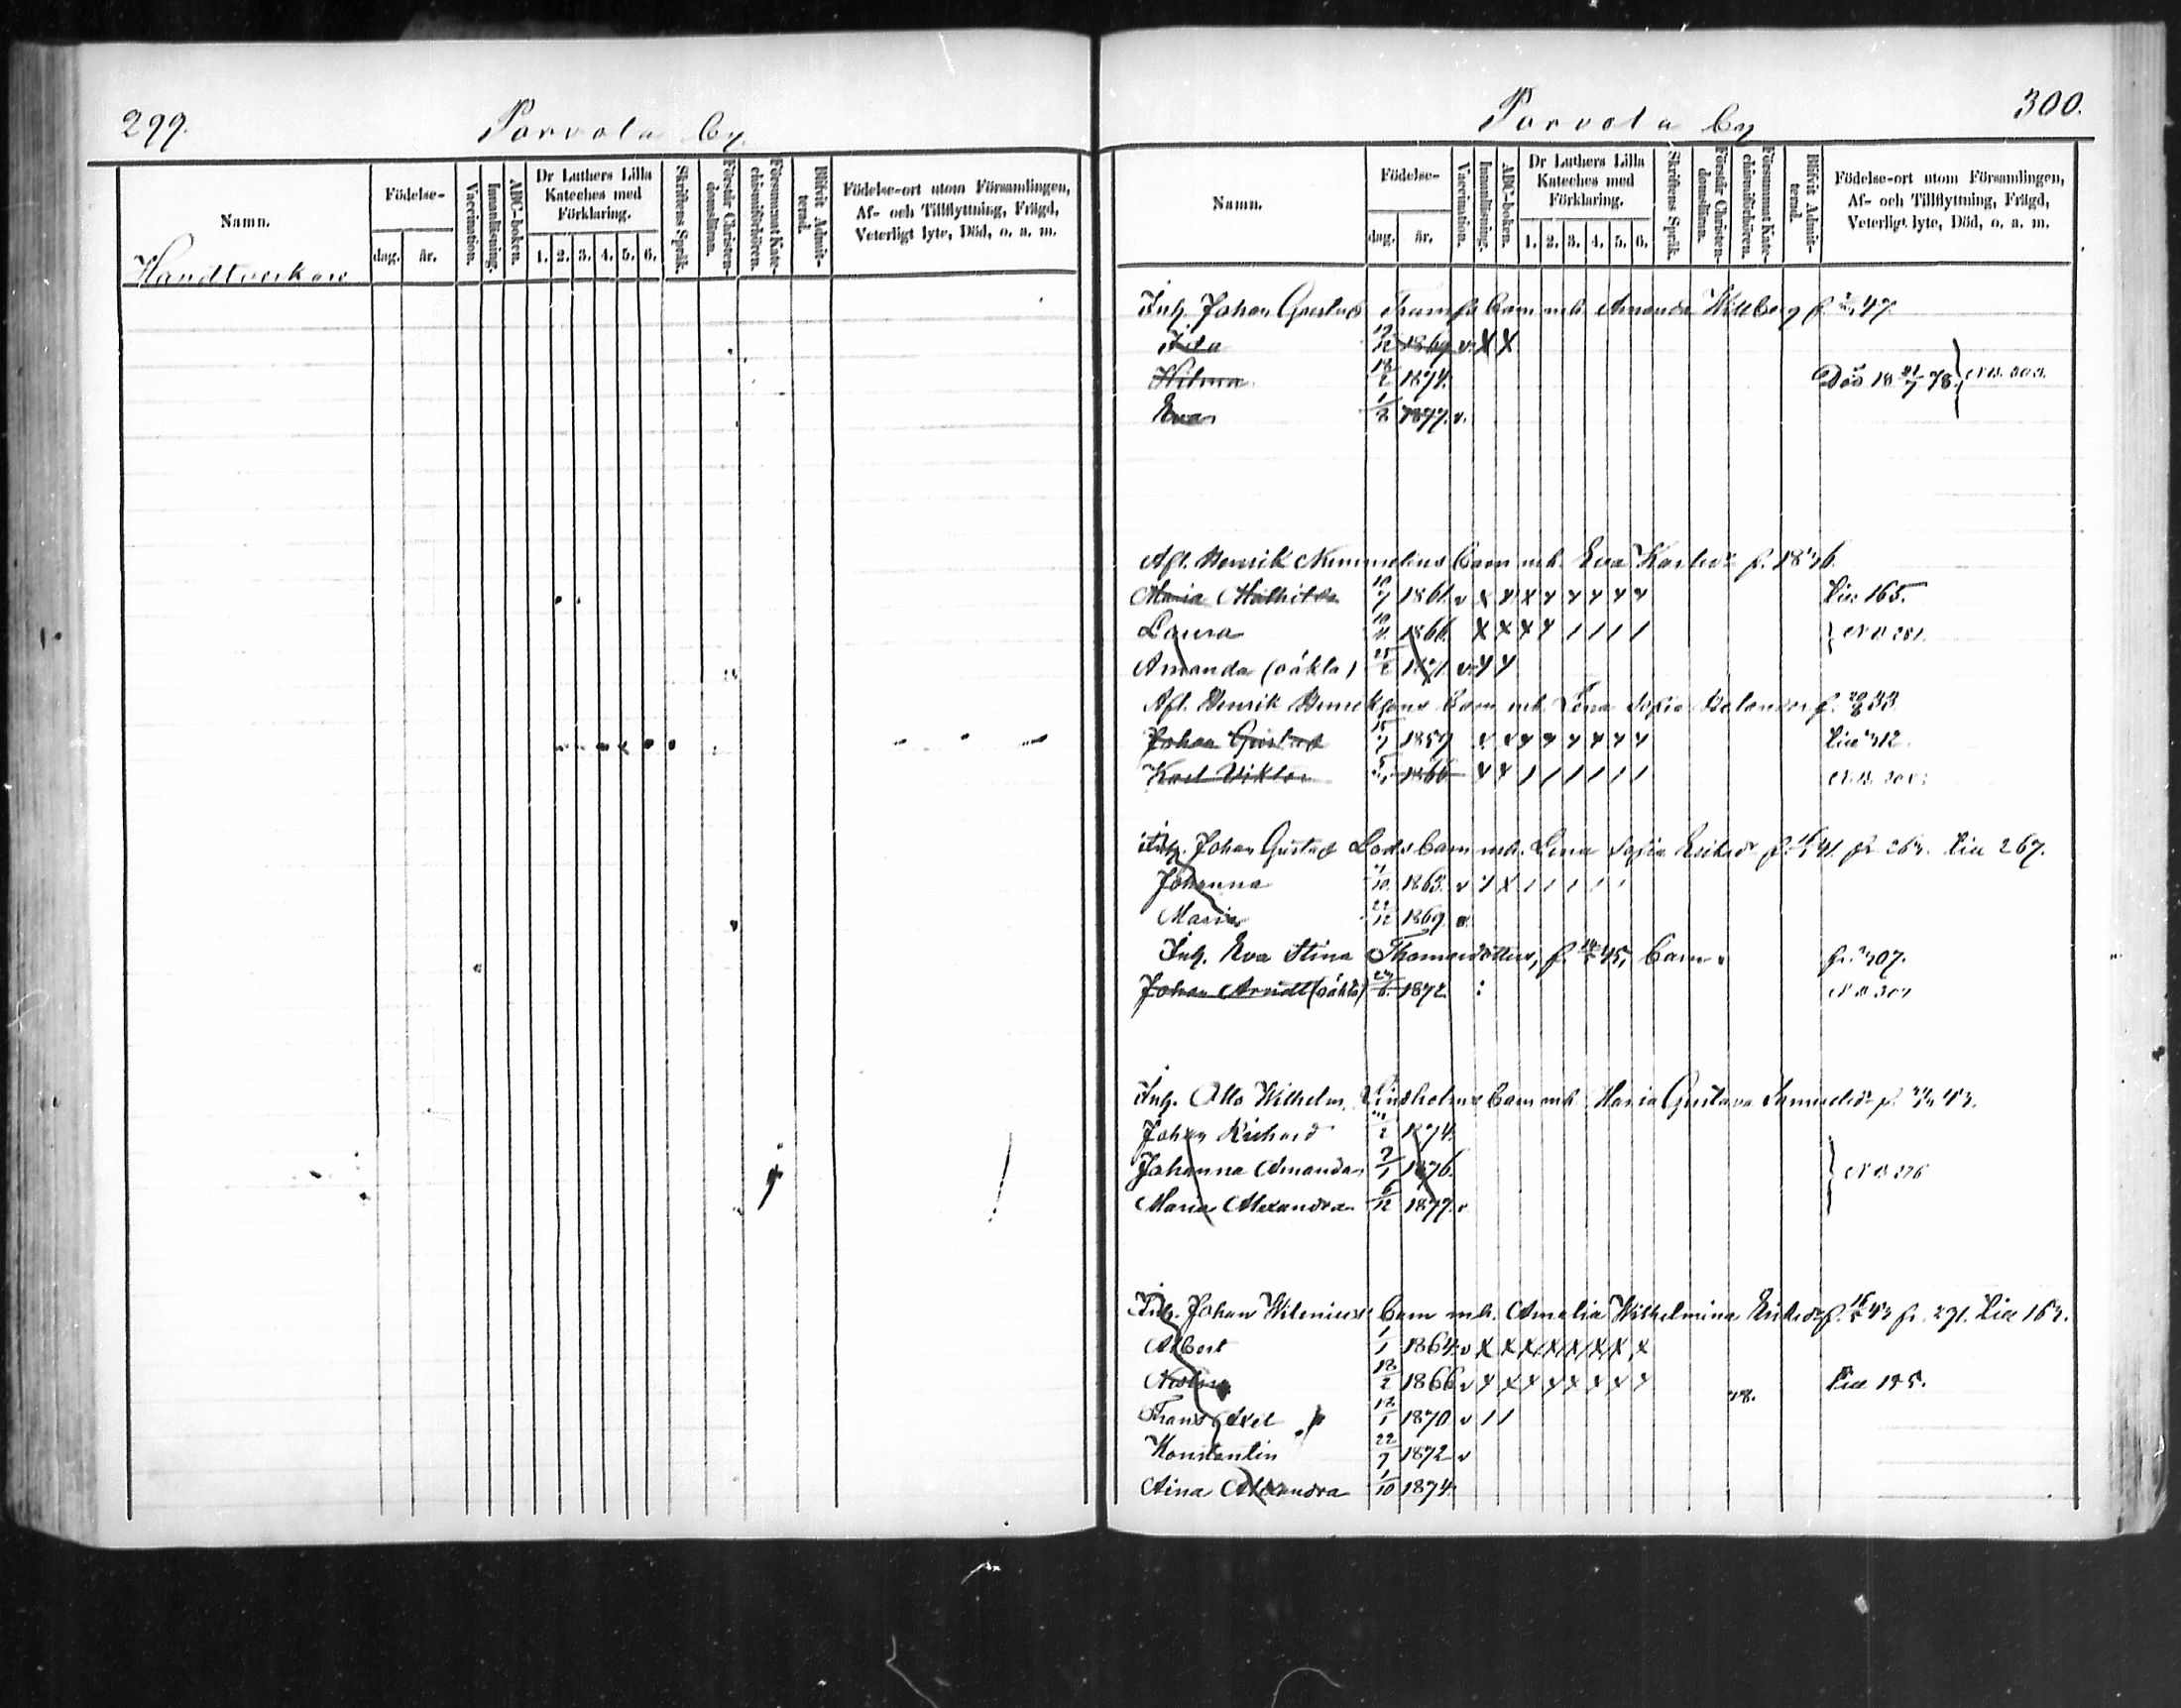 299.
Porvola by.
Namn.
Födelse-
dag. år.
Vaccination.
Innanläsning.
ABC-boken.
Dr Luthers Lilla Kateches med Förklaring.
1. 2. 3. 4. 5. 6.
Skriftens Språk.
Förstår Christendomslärnn.
Försummat Katechismiförhören.
Blifvit Admitterad.
Födelse-ort utom Församlingen, Af- och Tillflyttning, Frägd, Veterligt lyte, Död, o. a. m.
Handtverkare
300.
Porvola by
Namn.
Födelse-
dag. år.
Vaccination.
Innanläsning.
ABC-boken.
Dr Luthers Lilla Kateches med Förklaring.
1. 2. 3. 4. 5. 6.
Skriftens Språk.
Förstår Christendomslärnn.
Försummat Katechismiförhören.
Blifvit Admitterad.
Födelse-ort utom Församlingen, Af- och Tillflyttning, Frägd, Veterligt lyte, Död, o. a. m.
Inh. Johan Gustaf barn m.h. Amanda f. 47.
Ida 19/12 1869 v X X
Hilma 18/2 1874. Död 18 21/7 78.
Eva 1/2 1877. v.
Afl. Henrik Nummelins barn m.h. Eva Karlsdr f. 1836.
Maria Mathilda 10/7 1861. v x x x x x x x x Lin 165.
Laura 1866. X X X X / / / / N.B. 281.
Amanda (oäkta) 25/2 1871. v x x
Afl. Henrik Henrikssons barn m.h. Lena Sofia f. 33.
Johan Gustaf 15/7 1859 x x x x x x x x Lin 312.
Karl Viktor 1866 x x / / / / / /
Inh. Johan Gustaf barn m.h. Lena Sofia Eriksdr f. 41. fr. Lin 267.
Johanna 1863. v x x / / / / /
Maria 22/12 1869 v.
Inh. Eva Stina Thomasdotter, f. 45, barn. fr. 307.
Johan Arvidt (oäkta) 1872.
Inh. Otto Wilhelm Lindholms barn m.h. Maria Gustava Samuelsdr f. 43.
Johan Richard 1874.
Johanna Amanda 7/1 1876. N.B. 276
Maria Alexandra 6/12 1877. v
Inh. Johan Wilenius barn m.h. Amalia Wilhelmina Eriksdr f. 43 fr. 271. Lin
Albert 1/1 1864. v X X X X X X X X
18/2 1866 v x x x x x x x x Lin
Frans Axel 18/1 1870 v / /
Konstantin 22/7 1872 v
Aina Alexandra 1/10 1874